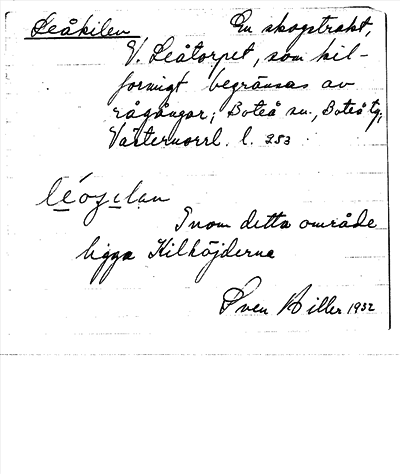 Leåkilen En skogstrakt,
V. Leåtorpet, som kil-
formigt begränsas av
rågångar; Boteå sn., Boteå tg;
Västernorrl. l. 253
Inom detta område
ligga Kilhöjderna
Sven Hiller 1932